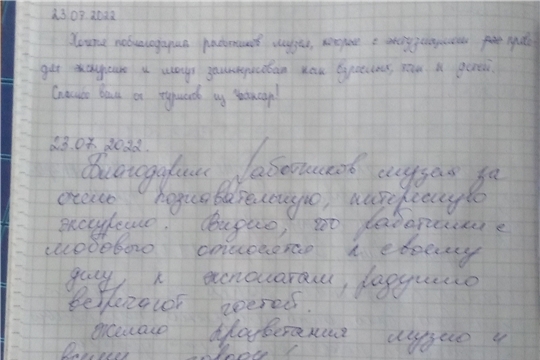 23.07.2022
Хотим поблагодарить работников музея, которые с энтузиазмом прово-
дят экскурсию и могут заинтересовать как взрослых, так и детей.
Спасибо вам от туристов из
23.07.2022.
Благодарим работников музея за
очень познавательную, интересную
экскурсию. Видно, что работники с
любовью относятся к своему
делу, к экспонатам, радушно
встречают гостей.
Желаю процветания музею и
всему городу!